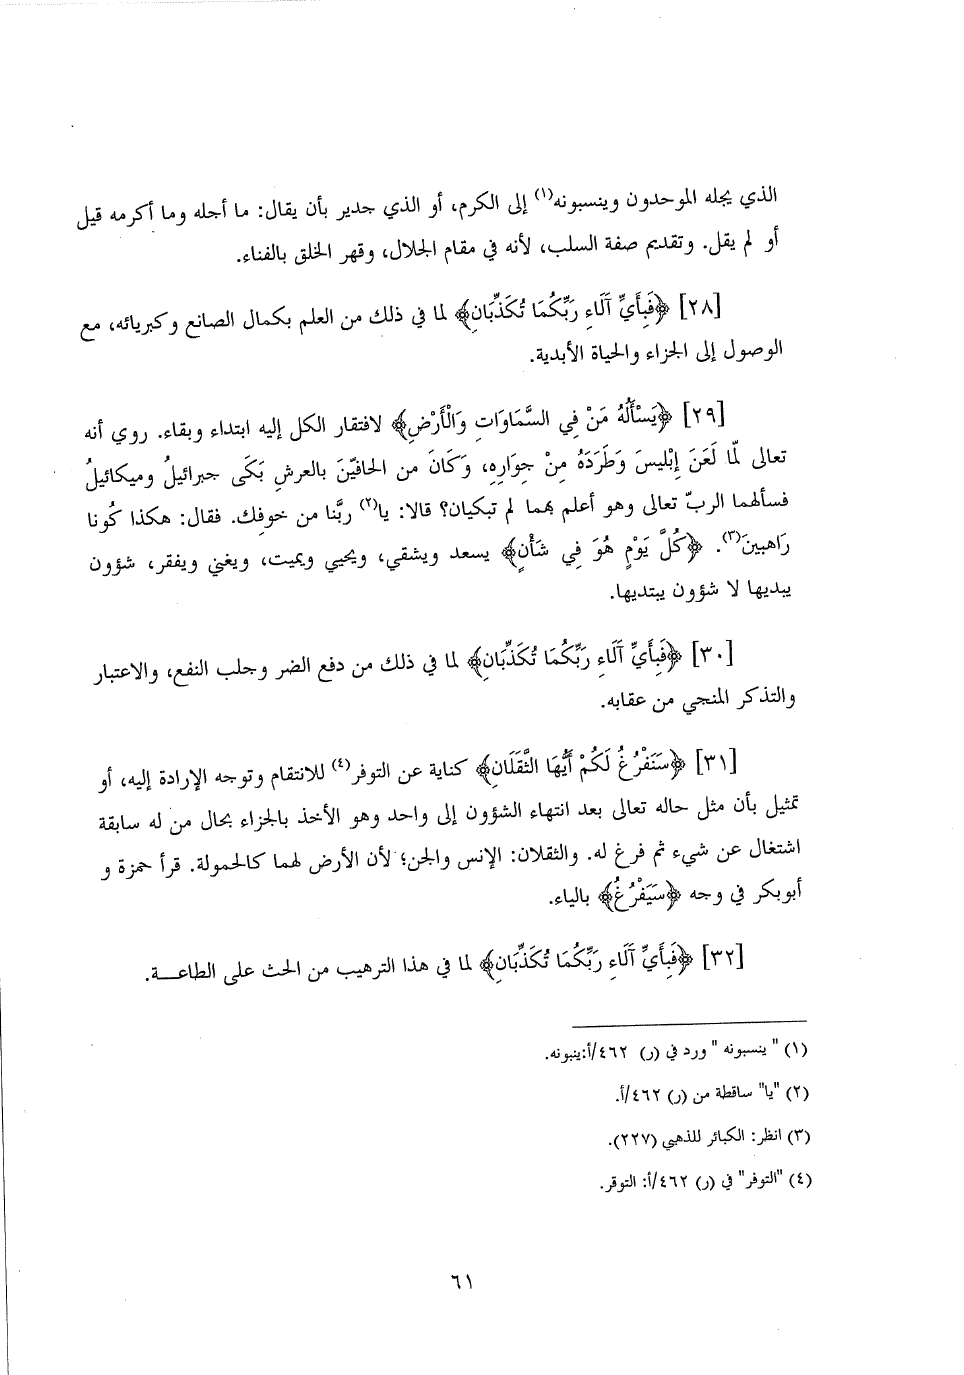 الذي يجله الموحدون وينسبونه(١) إلى الكرم، أو الذي جدير بأن يقال: ما أجله وما أكرمه قيل
أو لم يقل. وتقديم صفة السلب، لأنه في مقام الجلال، وقهر الخلق بالفناء.
[٢٨] ﴿فَبِأَيِّ آلَاءِ رَبِّكُمَا تُكَذِّبَانِ﴾ لما في ذلك من العلم بكمال الصانع وكبريائه، مع
الوصول إلى الجزاء والحياة الأبدية.
[٢٩] ﴿يَسْأَلُهُ مَنْ فِي السَّمَاوَاتِ وَالْأَرْضِ﴾ لافتقار الكل إليه ابتداء وبقاء. روي أنه
تعالى لمّا لَعَنَ إبليسَ وَطَرَدَهُ مِنْ جِوَارِهِ، وَكَانَ من الحافيّنَ بالعرشِ بَكَى جبرائيلُ وميكائيلُ
فسألهما الربّ تعالى وهو أعلم بهما لم تبكيان؟ قالا: يا(٢) ربَّنا من خوفِك. فقال: هكذا كُونا
رَاهبينَ(٣). ﴿كُلَّ يَوْمٍ هُوَ فِي شَأْنٍ﴾ يسعد ويشقي، ويحيي ويميت، ويغني ويفقر، شؤون
يبديها لا شؤون يبتديها.
[٣٠] ﴿فَبِأَيِّ آلَاءِ رَبِّكُمَا تُكَذِّبَانِ﴾ لما في ذلك من دفع الضر وجلب النفع، والاعتبار
والتذكر المنجي من عقابه.
[٣١] ﴿سَنَفْرُغُ لَكُمْ أَيُّهَا الثَّقَلَانِ﴾ كناية عن التوفر(٤) للانتقام وتوجه الإرادة إليه، أو
تمثيل بأن مثل حاله تعالى بعد انتهاء الشؤون إلى واحد وهو الأخذ بالجزاء بحال من له سابقة
اشتغال عن شيء ثم فرغ له. والثقلان: الإنس والجن؛ لأن الأرض لهما كالحمولة. قرأ حمزة و
أبوبكر في وجه ﴿سَيَفْرُغُ﴾ بالياء.
[٣٢] ﴿فَبِأَيِّ آلَاءِ رَبِّكُمَا تُكَذِّبَانِ﴾ لما في هذا الترهيب من الحث على الطاعــة.
(١) " ينسبونه " ورد في (ر) ٤٦٢/أ:ينبونه.
(٢) "يا" ساقطة من (ر) ٤٦٢/أ.
(٣) انظر: الكبائر للذهبي (٢٢٧).
(٤) "التوفر" في (ر) ٤٦٢/أ: التوقر.
٦١